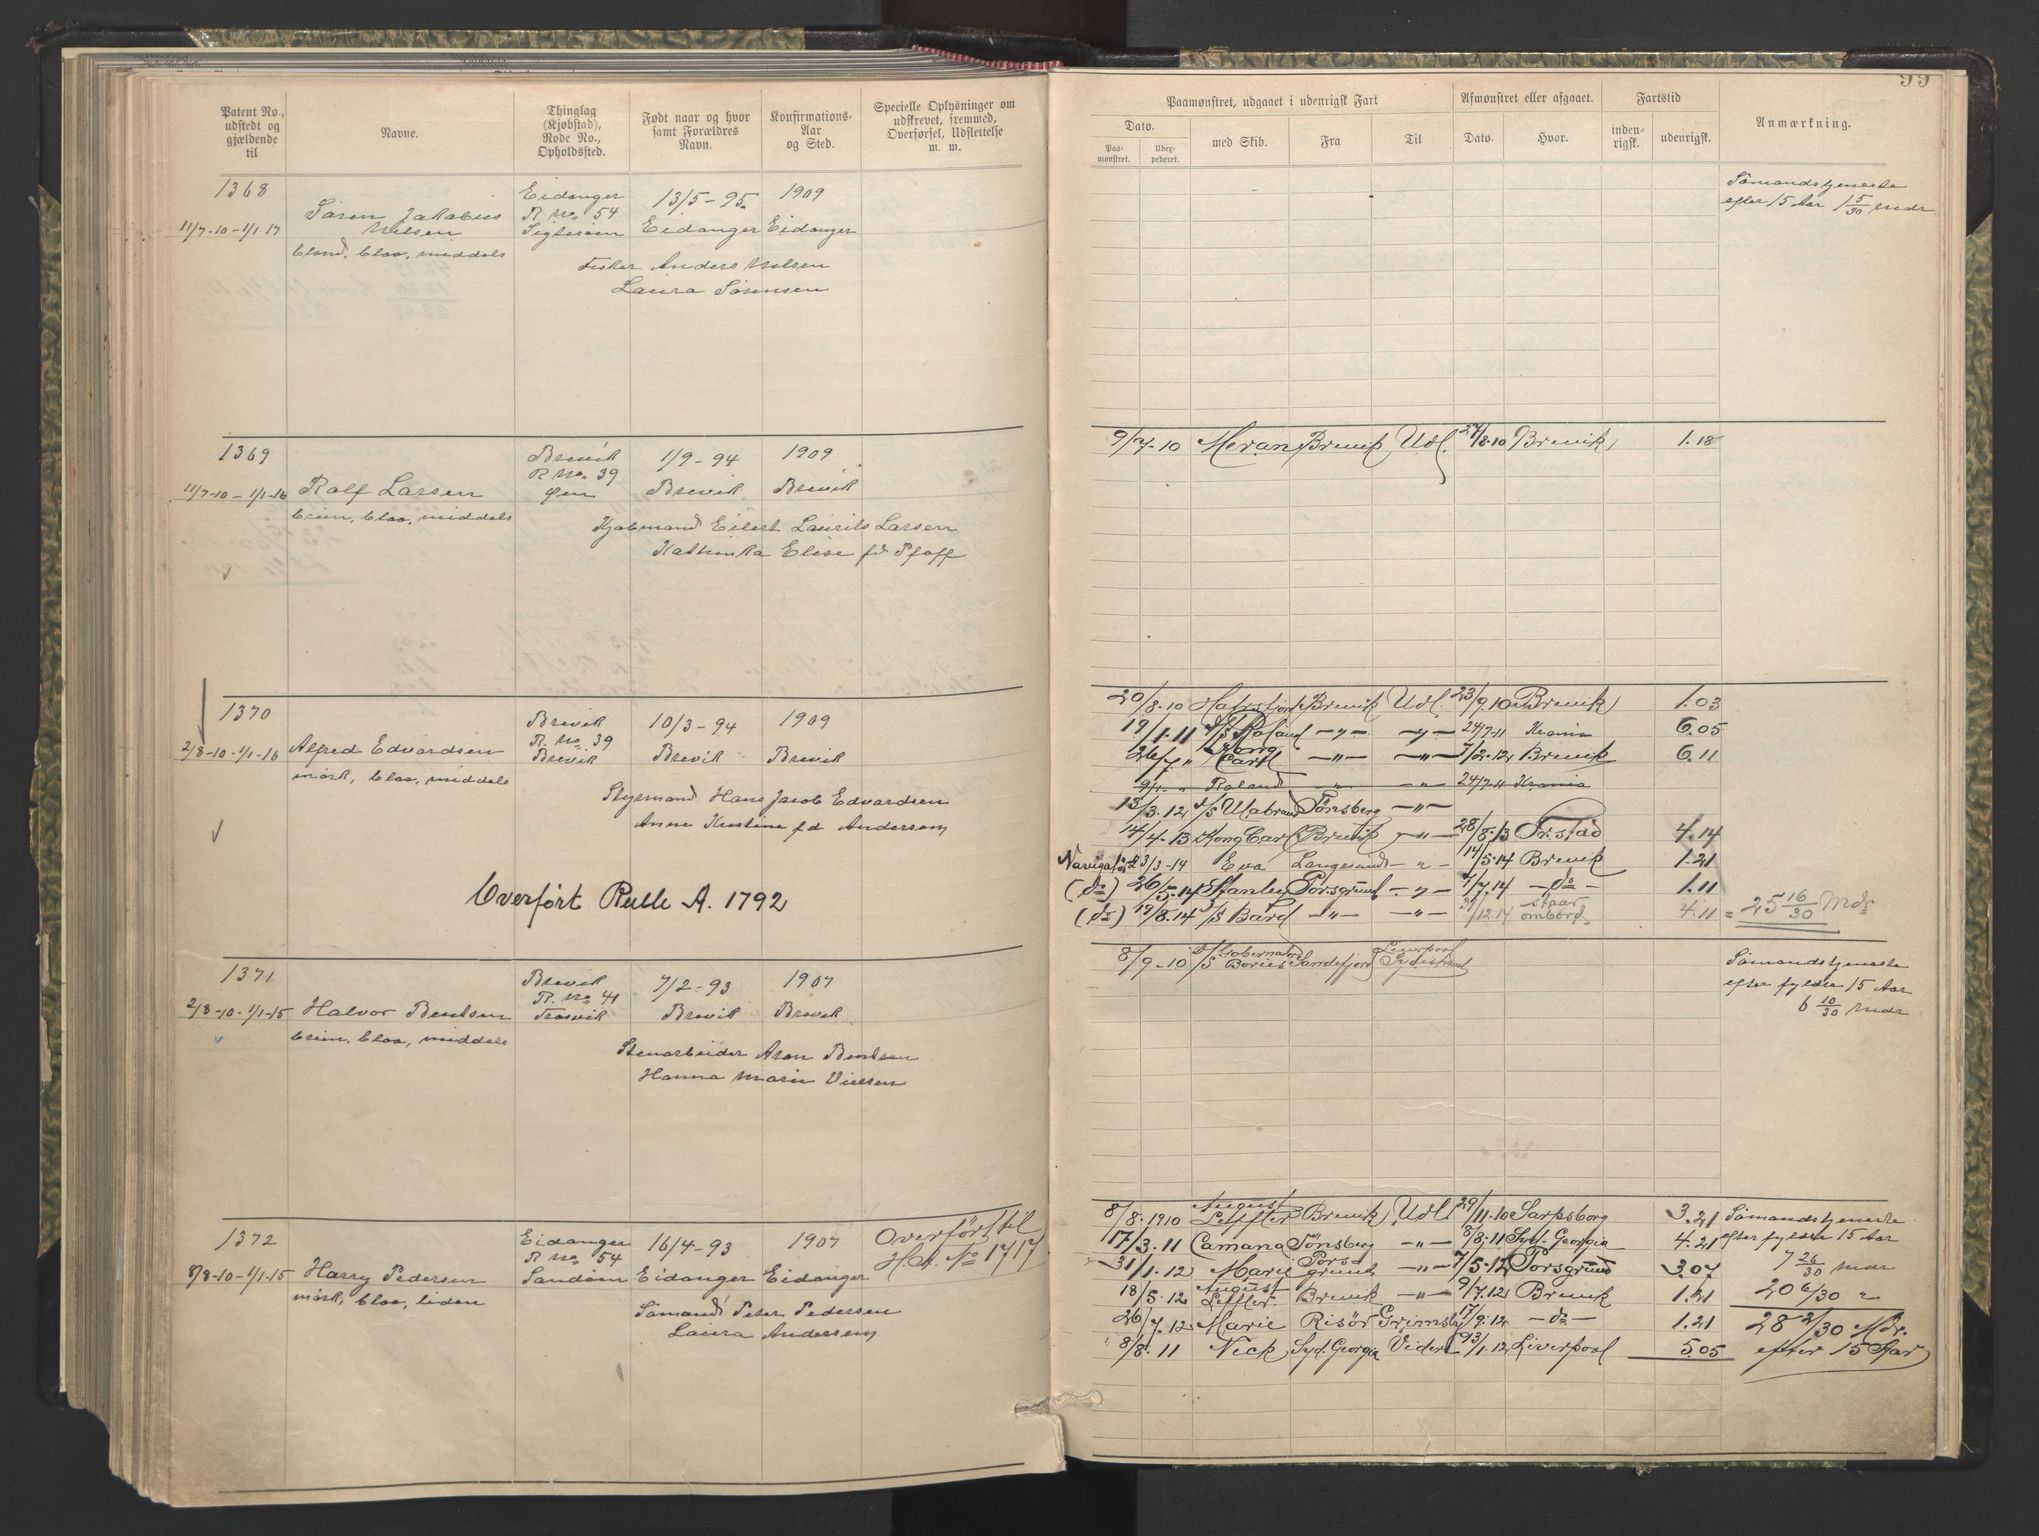 99
Patent No., udstedt og gjældende til
Navne.
Thinglag (Kjøbstad), Rode No., Opholdssted.
Født naar og hvor samt Forældres Navn.
Konfirmations-Aar og Sted.
Specielle Oplysninger om udskrevet, fremmed, Overførsel, Udslettelse m. m.
Paamønstret, udgaaet i udenrigsk Fart
Afmønstret eller afgaaet.
Fartstid
Anmærkning.
Dato.
Paamønstret.
med Skib.
Fra
Til
Dato.
Hvor.
indenrigsk.
udenrigsk.
1368
11/7-10-1/1 17
Søren Jakobius
Nilsen
blond, blaa, middels
Eidanger
R No 54
13/5-95
Eidanger
1909
Eidanger
Fisker Anders Nilsen
Laura Sørensen
Sømandstjeneste
efter 15 Aar 1 5/30 Mdr
1369
11/7-10-1/1-16
Rolf Larsen
brun, blaa, middels
Brevik
R No. 39
Øen
1/9-94
Brevik
1909
Brevik
Kjøbmand Eilert Laurits Larsen
Kathinka Elise fd. Pfaff
9/7-10 Meran Brevik Udl. 27/8-10 Brevik 1.18
1370
2/8-10-1/1-16
Alfred Edvardsen
mørk, blaa, middels
Brevik
R. No 39
Brevik
10/3-94
Brevik
1909
Brevik
Styrmand Hans Jacob Edvardsen
Anne Kristine fd Andersen
Overført Rulle A. 1792
20/8-10 Brevik Udl. 23/9-10 Brevik 1.03
19/1-11 D/S Roland -"- -"- 24/7-11 Krania 6.05
26/7 " Kong Carl -"- -"- 7/2-12 Brevik 6.11
9/1- " Roland -"- 24/7-11 Krania
13/3.12 Tønsberg -"-
14/4.13 Kong Carl Brevik -"- 28/8.13 Fr.stad 4.14
23/3-14 Eva Langesund -"- 14/5.14 Brevik 1.21
(do) 26/5.14 Stanley Porsgrund -"- 7/7.14 -do- 1.11
(do) 19/8.14 S/S Bård -"- -"- 31/12.14 staar ombord 4.11 = 25 16/30 Mdr
1371
2/8-10-1/1-15
Halvor Bentsen
brun, blaa, middels
Brevik
R. No 41
Trosvik
7/2-93
Brevik
1907
Brevik
Stenarbeider Aron Bentsen
Hanna Marie
8/9-10 S/S Gobernador Bories Sandefjord Liverpool
Sømandstjeneste
efter fyldte 15 Aar
6 10/30 Mdr
1372
8/8-10-1/1-15
Harry Pedersen
mørk, blaa, liden
Eidanger
R No 54
Sandøen
16/4-93
Eidanger
1907
Eidanger
Overført til
H.A. No 1717
Sømand Peter Pedersen
Laura Andersen
8/8.1910 August Leffler Brevik Udl 29/11-10 Sarpsborg 3.21 Sømandstjeneste
17/3.11 Camana Tønsberg -"- 8/8.11 Syd. Georgia 4.21 efter fyldte 15 Aar
31/1.12 Marie Porsgrund -"- 7/5.12 Porsgrund 3.07 7 26/30 Mdr
18/5.12 August Leffler. Brevik -"- 9/7.12 Brevik 1.21 20 6/30 "
26/7.12 Marie Risør Grimsby 17/9.12 -do- 1.21 28 2/30 Mdr.
8/8.11 Neck Syd. Georgia 1.12 Liverpool 5.05 efter 15 Aar